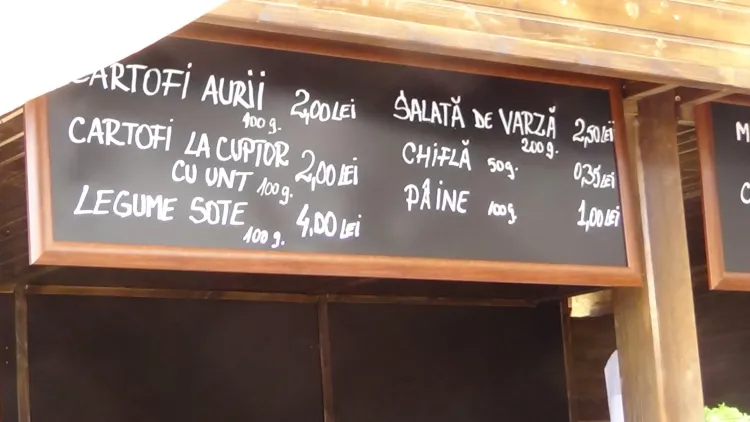 CARTOFI AURII 2,00 LEI
100 g.
CARTOFI LA CUPTOR
CU UNT 100 g. 2,00 LEI
LEGUME SOTE 4,00 LEI
100 g.
SALATĂ DE VARZĂ 2,50 LEI
200 g.
CHIFLĂ 50 g. 0,35 LEI
PÂINE 100 g. 1,00 LEI